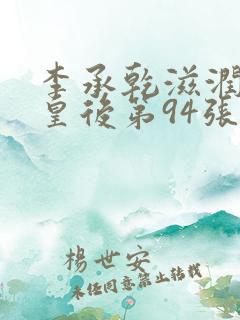 李承乾滋潤
皇後第94張
楊世安
未任同意禁止轉載